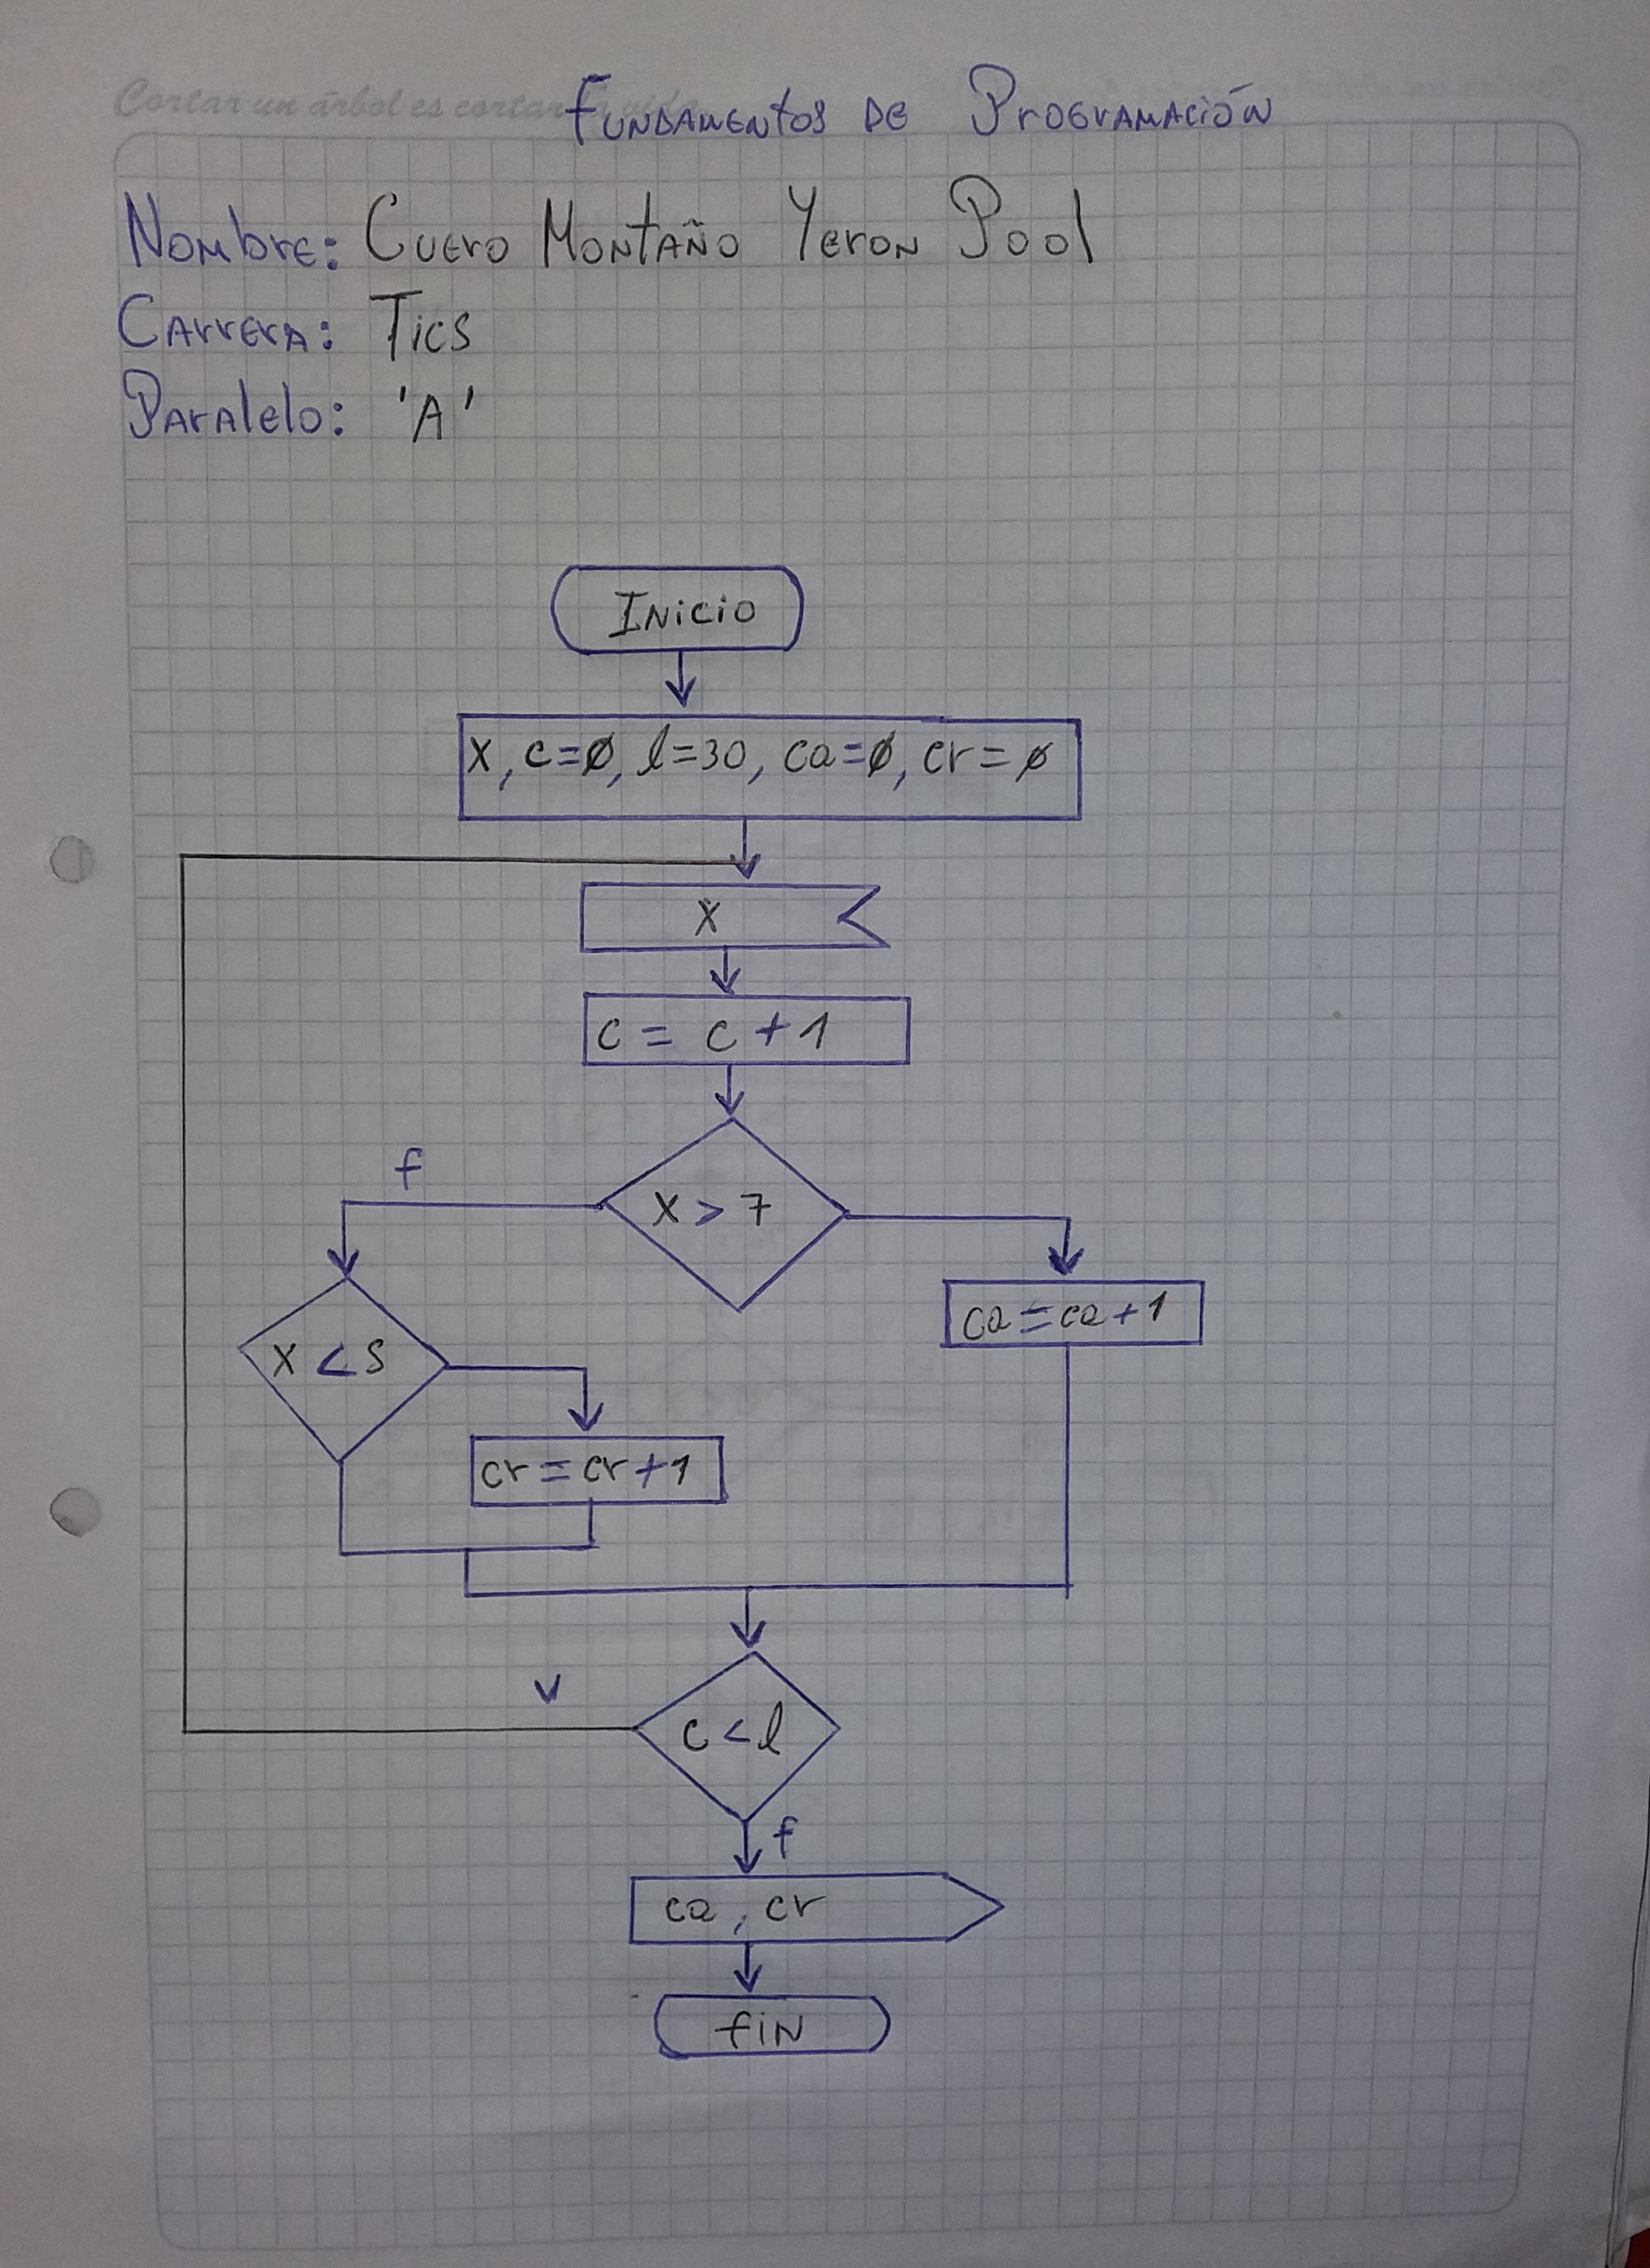 Cortar un árbol es cortar vida
Fundamentos de Programación
Nombre: Cuero Montaño Yeron Pool
Carrera: Tics
Paralelo: 'A'
Inicio
x, c=0, l=30, ca=0, cr=0
x
c = c + 1
f
x > 7
ca = ca + 1
x < 5
cr = cr + 1
v
c < l
f
ca, cr
fin